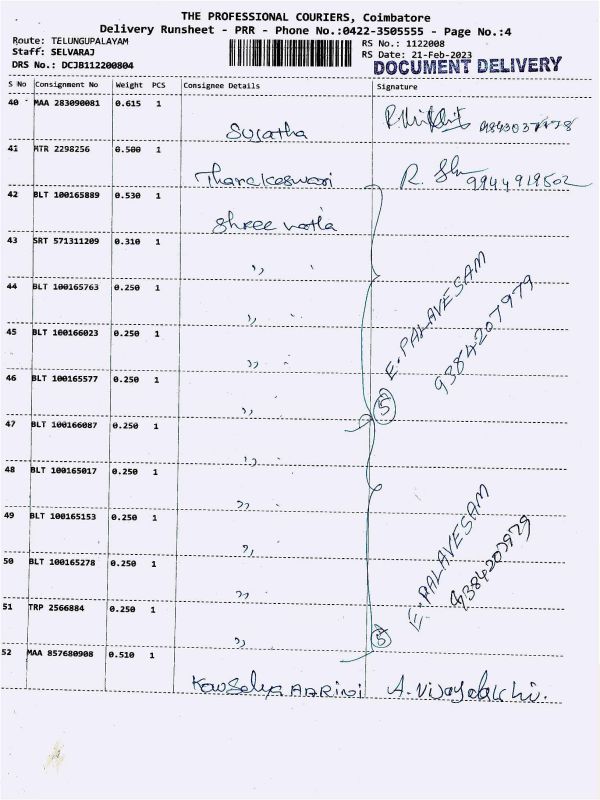 THE PROFESSIONAL COURIERS, Coimbatore
Delivery Runsheet - PRR - Phone No.:0422-3505555 - Page No.:4
Route: TELUNGUPALAYAM RS No.: 1122008
Staff: SELVARAJ RS Date: 21-Feb-2023
DRS No.: DCJB112200804 DOCUMENT DELIVERY
S No Consignment No Weight PCS Consignee Details Signature
40 MAA 283090081 0.615 1
Sujatha
41 MTR 2298256 0.500 1
Tharakeswari R. 9944919502
42 BLT 100165889 0.530 1
Shree
43 SRT 571311209 0.310 1
,,
44 BLT 100165763 0.250 1
,,
45 BLT 100166023 0.250 1
,,
E. PALAVESAM
9384207979
46 BLT 100165577 0.250 1
,,
5
47 BLT 100166087 0.250 1
,,
48 BLT 100165017 0.250 1
,,
49 BLT 100165153 0.250 1
,,
50 BLT 100165278 0.250 1
,,
E. PALAVESAM
9384207979
51 TRP 2566884 0.250 1
,,
5
52 MAA 857680908 0.510 1
Kowsalya AARINI A. Vijayalakshi.